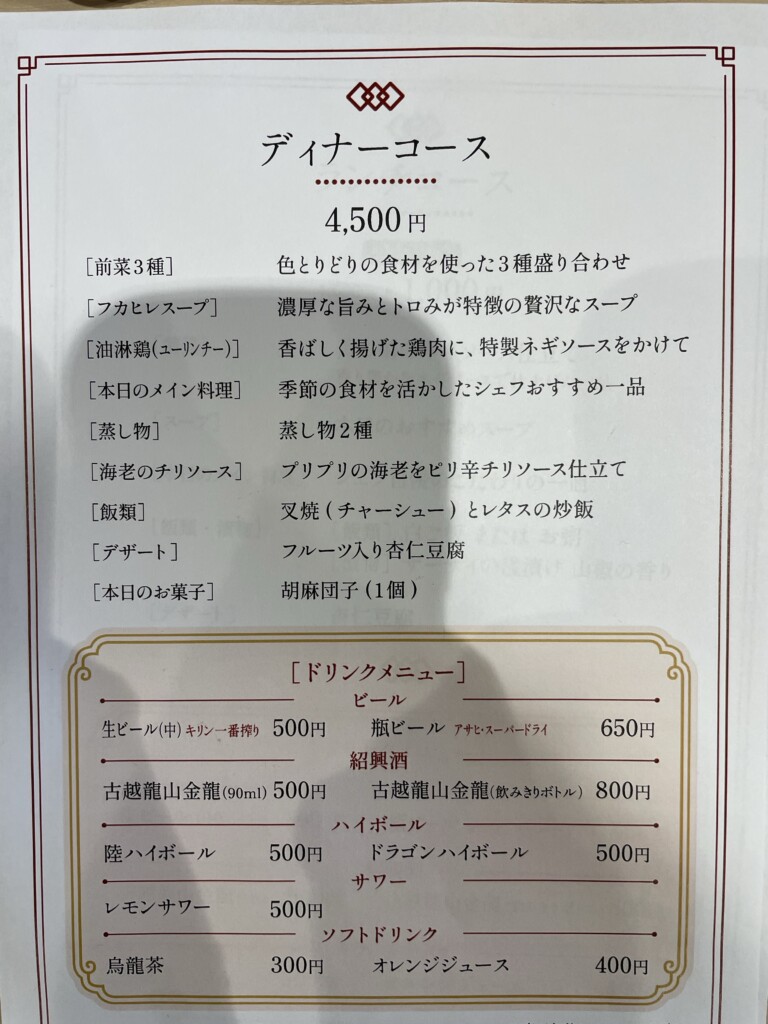 ディナーコース
4,500円
[前菜3種] 色とりどりの食材を使った3種盛り合わせ
[フカヒレスープ] 濃厚な旨みとトロみが特徴の贅沢なスープ
[油淋鶏(ユーリンチー)] 香ばしく揚げた鶏肉に、特製ネギソースをかけて
[本日のメイン料理] 季節の食材を活かしたシェフおすすめ一品
[蒸し物] 蒸し物2種
[海老のチリソース] プリプリの海老をピリ辛チリソース仕立て
[飯類] 叉焼(チャーシュー)とレタスの炒飯
[デザート] フルーツ入り杏仁豆腐
[本日のお菓子] 胡麻団子(1個)
[ドリンクメニュー]
ビール
生ビール(中) キリン一番搾り 500円 瓶ビール アサヒ・スーパードライ 650円
紹興酒
古越龍山金龍(90ml) 500円 古越龍山金龍(飲みきりボトル) 800円
ハイボール
陸ハイボール 500円 ドラゴンハイボール 500円
サワー
レモンサワー 500円
ソフトドリンク
烏龍茶 300円 オレンジジュース 400円